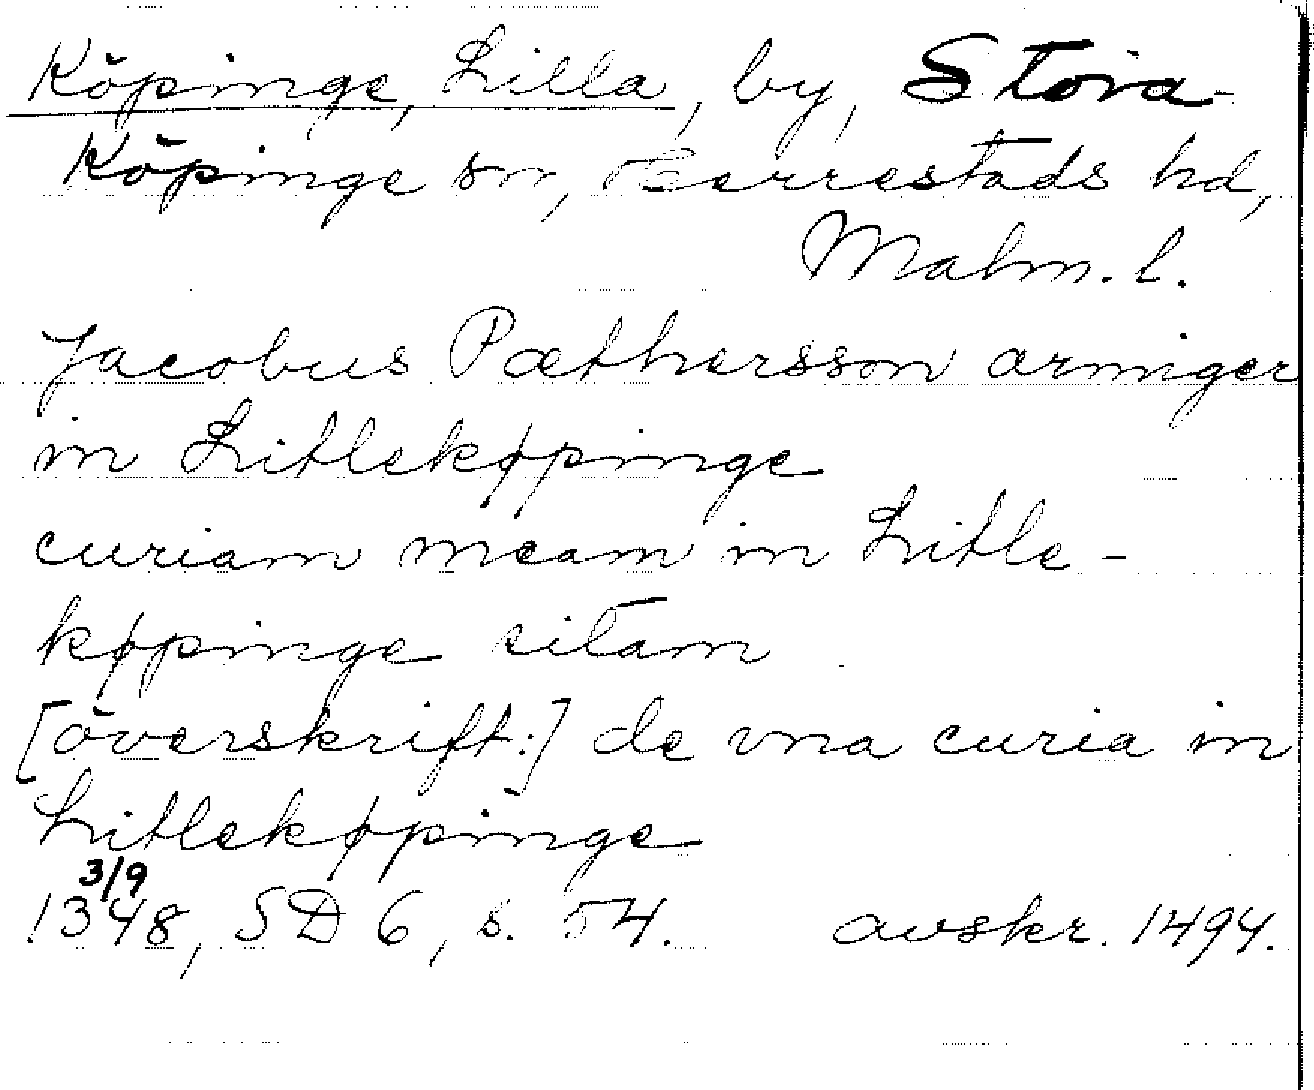 Köpinge, Lilla, by, Stora-
Köpinge sn, Herrestads hd,
Malm. l.
Jacobus Pæthersson armiger
in Litlekøpinge
curiam meam in Litle-
køpinge sitam
[överskrift:] de vna curia in
Litlekøpinge
3/9
1348, SD 6, s. 54. avskr. 1494.